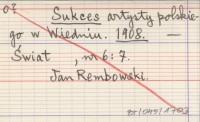 o?
Sukces artysty polskie-
go w Wiedniu. 1908. —
Świat , nr 6: 7.
Jan Rembowski.